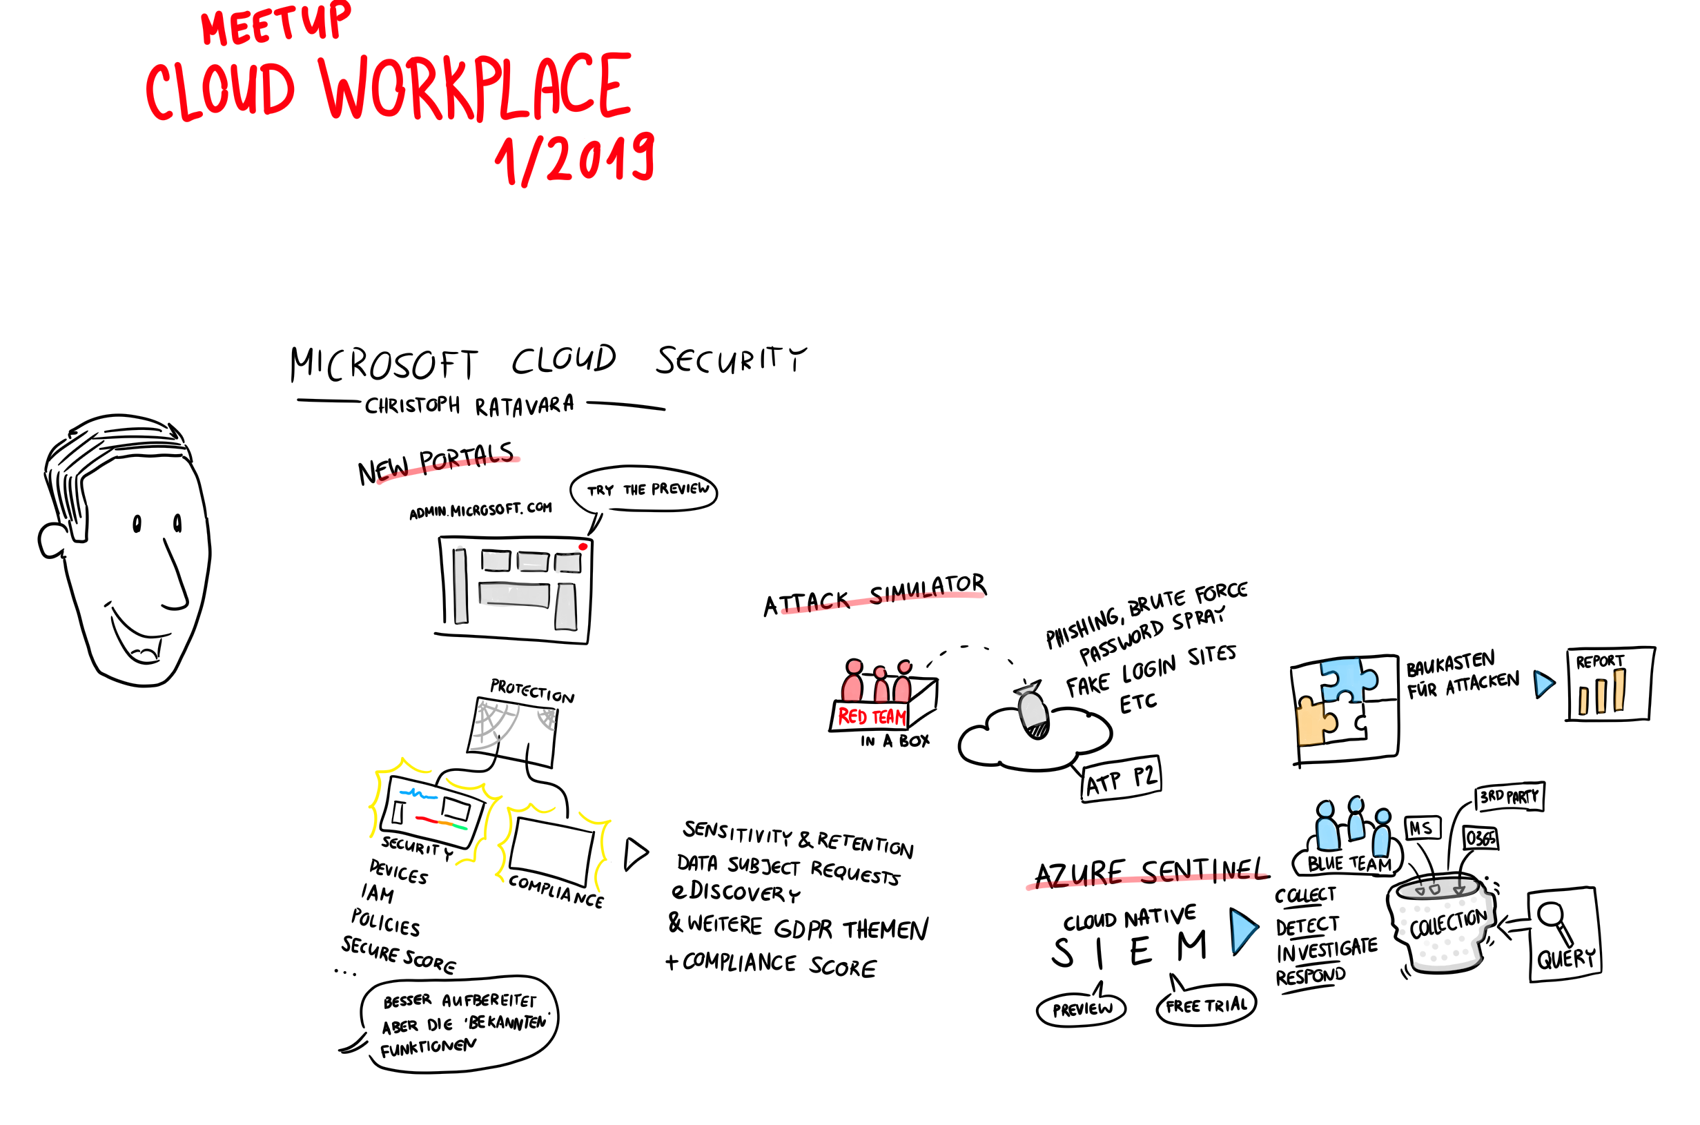 MEETUP
CLOUD WORKPLACE
1/2019
MICROSOFT CLOUD SECURITY
CHRISTOPH RATAVARA
NEW PORTALS
ADMIN.MICROSOFT.COM
TRY THE PREVIEW
PROTECTION
SECURITY
DEVICES
IAM
POLICIES
SECURE SCORE
...
BESSER AUFBEREITET
ABER DIE 'BEKANNTEN'
FUNKTIONEN
COMPLIANCE
SENSITIVITY & RETENTION
DATA SUBJECT REQUESTS
eDISCOVERY
& WEITERE GDPR THEMEN
+ COMPLIANCE SCORE
ATTACK SIMULATOR
RED TEAM
IN A BOX
PHISHING, BRUTE FORCE
PASSWORD SPRAY
FAKE LOGIN SITES
ETC
ATP P2
BAUKASTEN
FÜR ATTACKEN
REPORT
AZURE SENTINEL
CLOUD NATIVE
SIEM
PREVIEW
FREE TRIAL
BLUE TEAM
COLLECT
DETECT
INVESTIGATE
RESPOND
MS
3RD PARTY
O365
COLLECTION
QUERY